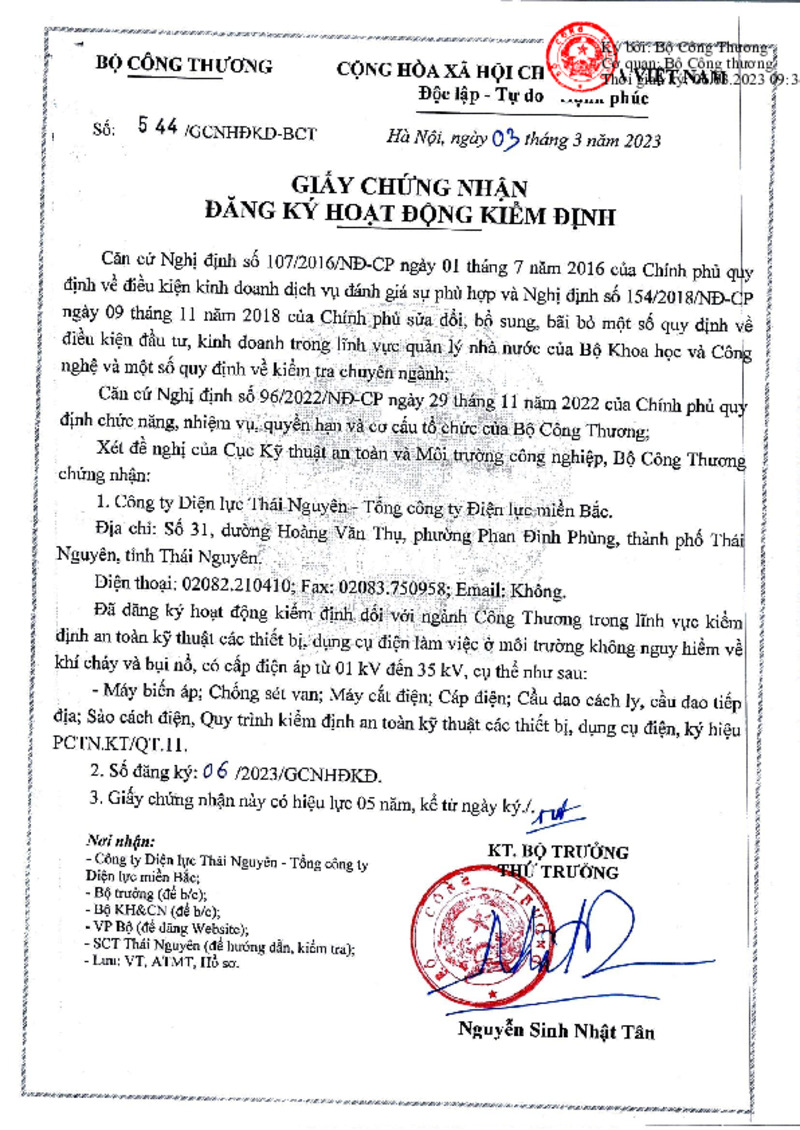 BỘ CÔNG THƯƠNG
CỘNG HÒA XÃ HỘI CH A VIỆT NAM
Độc lập - Tự do phúc
Ký bởi: Bộ Công Thương
Cơ quan: Bộ Công thương
Thời gian ký: .03.2023 09:3
Số: 544 /GCNHĐKD-BCT
Hà Nội, ngày 03 tháng 3 năm 2023
GIẤY CHỨNG NHẬN
ĐĂNG KÝ HOẠT ĐỘNG KIỂM ĐỊNH
Căn cứ Nghị định số 107/2016/NĐ-CP ngày 01 tháng 7 năm 2016 của Chính phủ quy
định về điều kiện kinh doanh dịch vụ đánh giá sự phù hợp và Nghị định số 154/2018/NĐ-CP
ngày 09 tháng 11 năm 2018 của Chính phủ sửa đổi, bổ sung, bãi bỏ một số quy định về
điều kiện đầu tư, kinh doanh trong lĩnh vực quản lý nhà nước của Bộ Khoa học và Công
nghệ và một số quy định về kiểm tra chuyên ngành;
Căn cứ Nghị định số 96/2022/NĐ-CP ngày 29 tháng 11 năm 2022 của Chính phủ quy
định chức năng, nhiệm vụ, quyền hạn và cơ cấu tổ chức của Bộ Công Thương;
Xét đề nghị của Cục Kỹ thuật an toàn và Môi trường công nghiệp, Bộ Công Thương
chứng nhận:
1. Công ty Điện lực Thái Nguyên - Tổng công ty Điện lực miền Bắc.
Địa chỉ: Số 31, đường Hoàng Văn Thụ, phường Phan Đình Phùng, thành phố Thái
Nguyên, tỉnh Thái Nguyên.
Điện thoại: 02082.210410; Fax: 02083.750958; Email: Không.
Đã đăng ký hoạt động kiểm định đối với ngành Công Thương trong lĩnh vực kiểm
định an toàn kỹ thuật các thiết bị, dụng cụ điện làm việc ở môi trường không nguy hiểm về
khí cháy và bụi nổ, có cấp điện áp từ 01 kV đến 35 kV, cụ thể như sau:
- Máy biến áp; Chống sét van; Máy cắt điện; Cáp điện; Cầu dao cách ly, cầu dao tiếp
địa; Sào cách điện, Quy trình kiểm định an toàn kỹ thuật các thiết bị, dụng cụ điện, ký hiệu
PCTN.KT/QT.11.
2. Số đăng ký: 06 /2023/GCNHĐKĐ.
3. Giấy chứng nhận này có hiệu lực 05 năm, kể từ ngày ký./.
Nơi nhận:
- Công ty Điện lực Thái Nguyên - Tổng công ty
Điện lực miền Bắc;
- Bộ trưởng (để b/c);
- Bộ KH&CN (để b/c);
- VP Bộ (để đăng Website);
- SCT Thái Nguyên (để hướng dẫn, kiểm tra);
- Lưu: VT, ATMT, Hồ sơ.
KT. BỘ TRƯỞNG
THỨ TRƯỞNG
BỘ CÔNG THƯƠNG
Nguyễn Sinh Nhật Tân